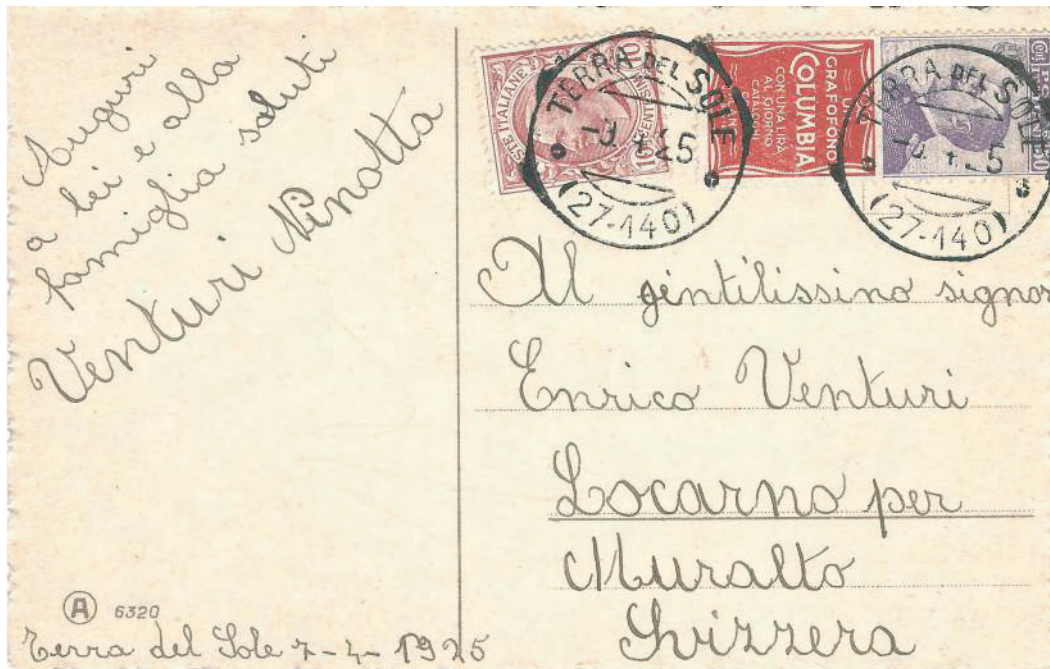 Auguri
a lei e alla
famiglia saluti
Venturi Ninotta
A 6320
Terra del Sole 7-4-1925
POSTE ITALIANE
CENTESIMI 10
UN
GRAFOFONO
COLUMBIA
CON UNA LIRA
AL GIORNO
TERRA DEL SOLE
(27-140)
TERRA DEL SOLE
(27-140)
Al gentilissino signor
Enrico Venturi
Locarno per
Muralto
Svizzera